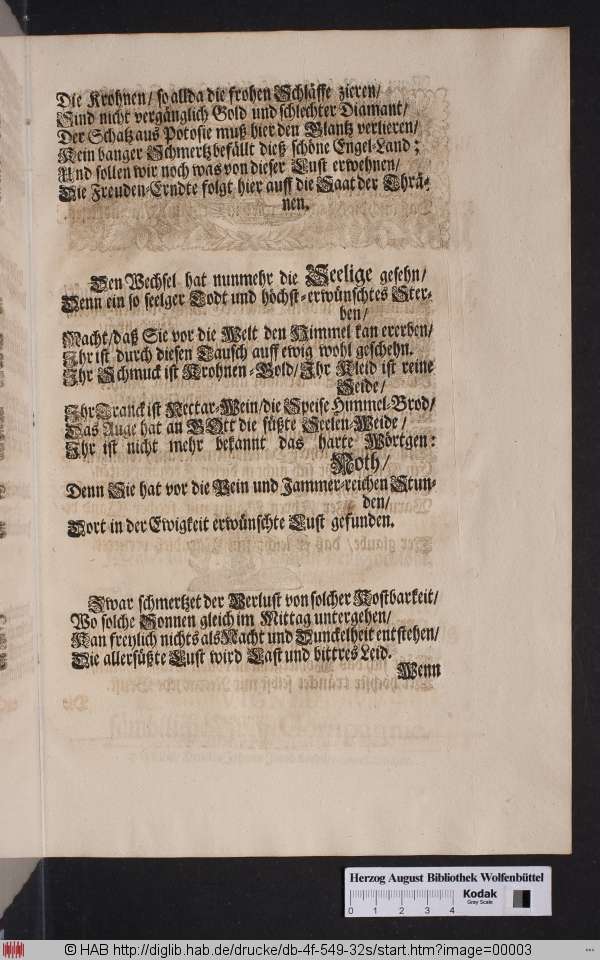 Die Krohnen/ so allda die frohen Schläffe zieren/
Sind nicht vergänglich Gold und schlechter Diamant/
Der Schatz aus Potosie muß hier den Glantz verlieren/
Kein banger Schmertz befällt dieß schöne Engel-Land;
Und sollen wir noch was von dieser Lust erwehnen/
Die Freuden-Erndte folgt hier auff die Saat der Thrä-
nen.
Den Wechsel hat nunmehr die Seelige gesehn/
Denn ein so seelger Todt und höchst-erwünschtes Ster-
ben/
Macht/ daß Sie vor die Welt den Himmel kan ererben/
Ihr ist durch diesen Tausch auff ewig wohl geschehn.
Ihr Schmuck ist Krohnen-Gold/ Ihr Kleid ist reine
Seide/
Ihr Tranck ist Nectar-Wein/ die Speise Himmel-Brod/
Das Auge hat an GOtt die süßte Seelen-Weide/
Ihr ist nicht mehr bekannt das harte Wörtgen:
Noth/
Denn Sie hat vor die Pein und Jammer-reichen Stun-
den/
Dort in der Ewigkeit erwünschte Lust gefunden.
Zwar schmertzet der Verlust von solcher Kostbarkeit/
Wo solche Sonnen gleich im Mittag untergehen/
Kan freylich nichts als Nacht und Dunckelheit entstehen/
Die allersüßte Lust wird Last und bittres Leid.
Wenn
Herzog August Bibliothek Wolfenbüttel
Kodak
Gray Scale
0 1 2 3 4
© HAB http://diglib.hab.de/drucke/db-4f-549-32s/start.htm?image=00003